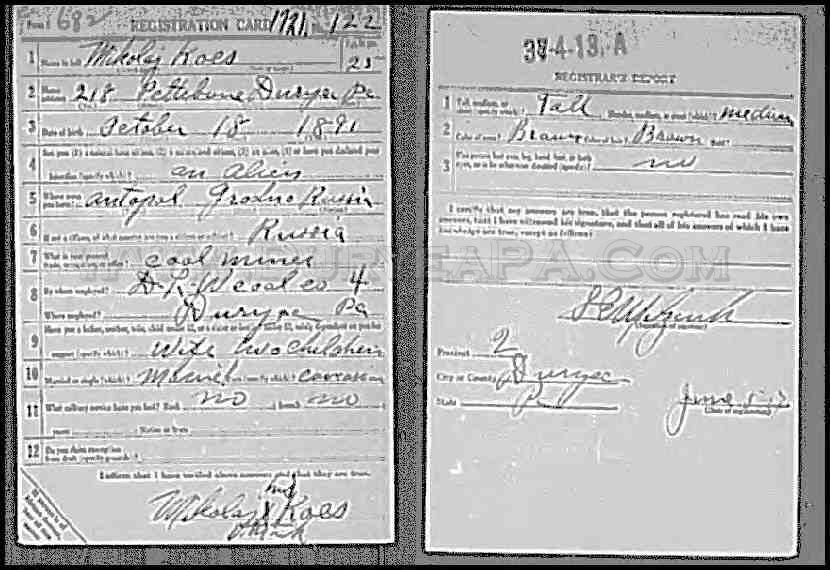 Form 1 682 REGISTRATION CARD 1721 No. 122
1 Name in full Mikolaj Koes Age, in yrs. 25
2 Home address 218 Pettebone Duryea Pa
3 Date of birth October 18 1891
4 Are you (1) a natural born citizen, (2) a naturalized citizen, (3) an alien, (4) or have you declared your
intention (specify which)? an alien
5 Where were you born? Antopol Grodno Russia
6 If not a citizen, of what country are you a citizen or subject? Russia
7 What is your present trade, occupation, or office? coal miner
8 By whom employed? D. L. W coal co 4
Where employed? Duryea Pa
9 Have you a father, mother, wife, child under 12, or a sister or brother under 12, solely dependent on you for
support (specify which)? Wife two children
10 Married or single (which)? Married Race (specify which)? Caucasi
11 What military service have you had? Rank no branch no
years Nation or State
12 Do you claim exemption from draft (specify grounds)?
I affirm that I have verified above answers and that they are true.
his
Mikolaj X Koes
mark
If person is of African descent, tear off this corner
37-4-13. A
REGISTRAR'S REPORT
1 Tall, medium, or short (specify which)? Tall Slender, medium, or stout (which)? medium
2 Color of eyes? Brown Color of hair? Brown Bald?
3 Has person lost arm, leg, hand, foot, or both eyes, or is he otherwise disabled (specify)? no
I certify that my answers are true, that the person registered has read his own
answers, that I have witnessed his signature, and that all of his answers of which I have
knowledge are true, except as follows:
(Signature of registrar)
Precinct 2
City or County Duryea
State Pa
June 5-17
(Date of registration)
DURYEAPA.COM